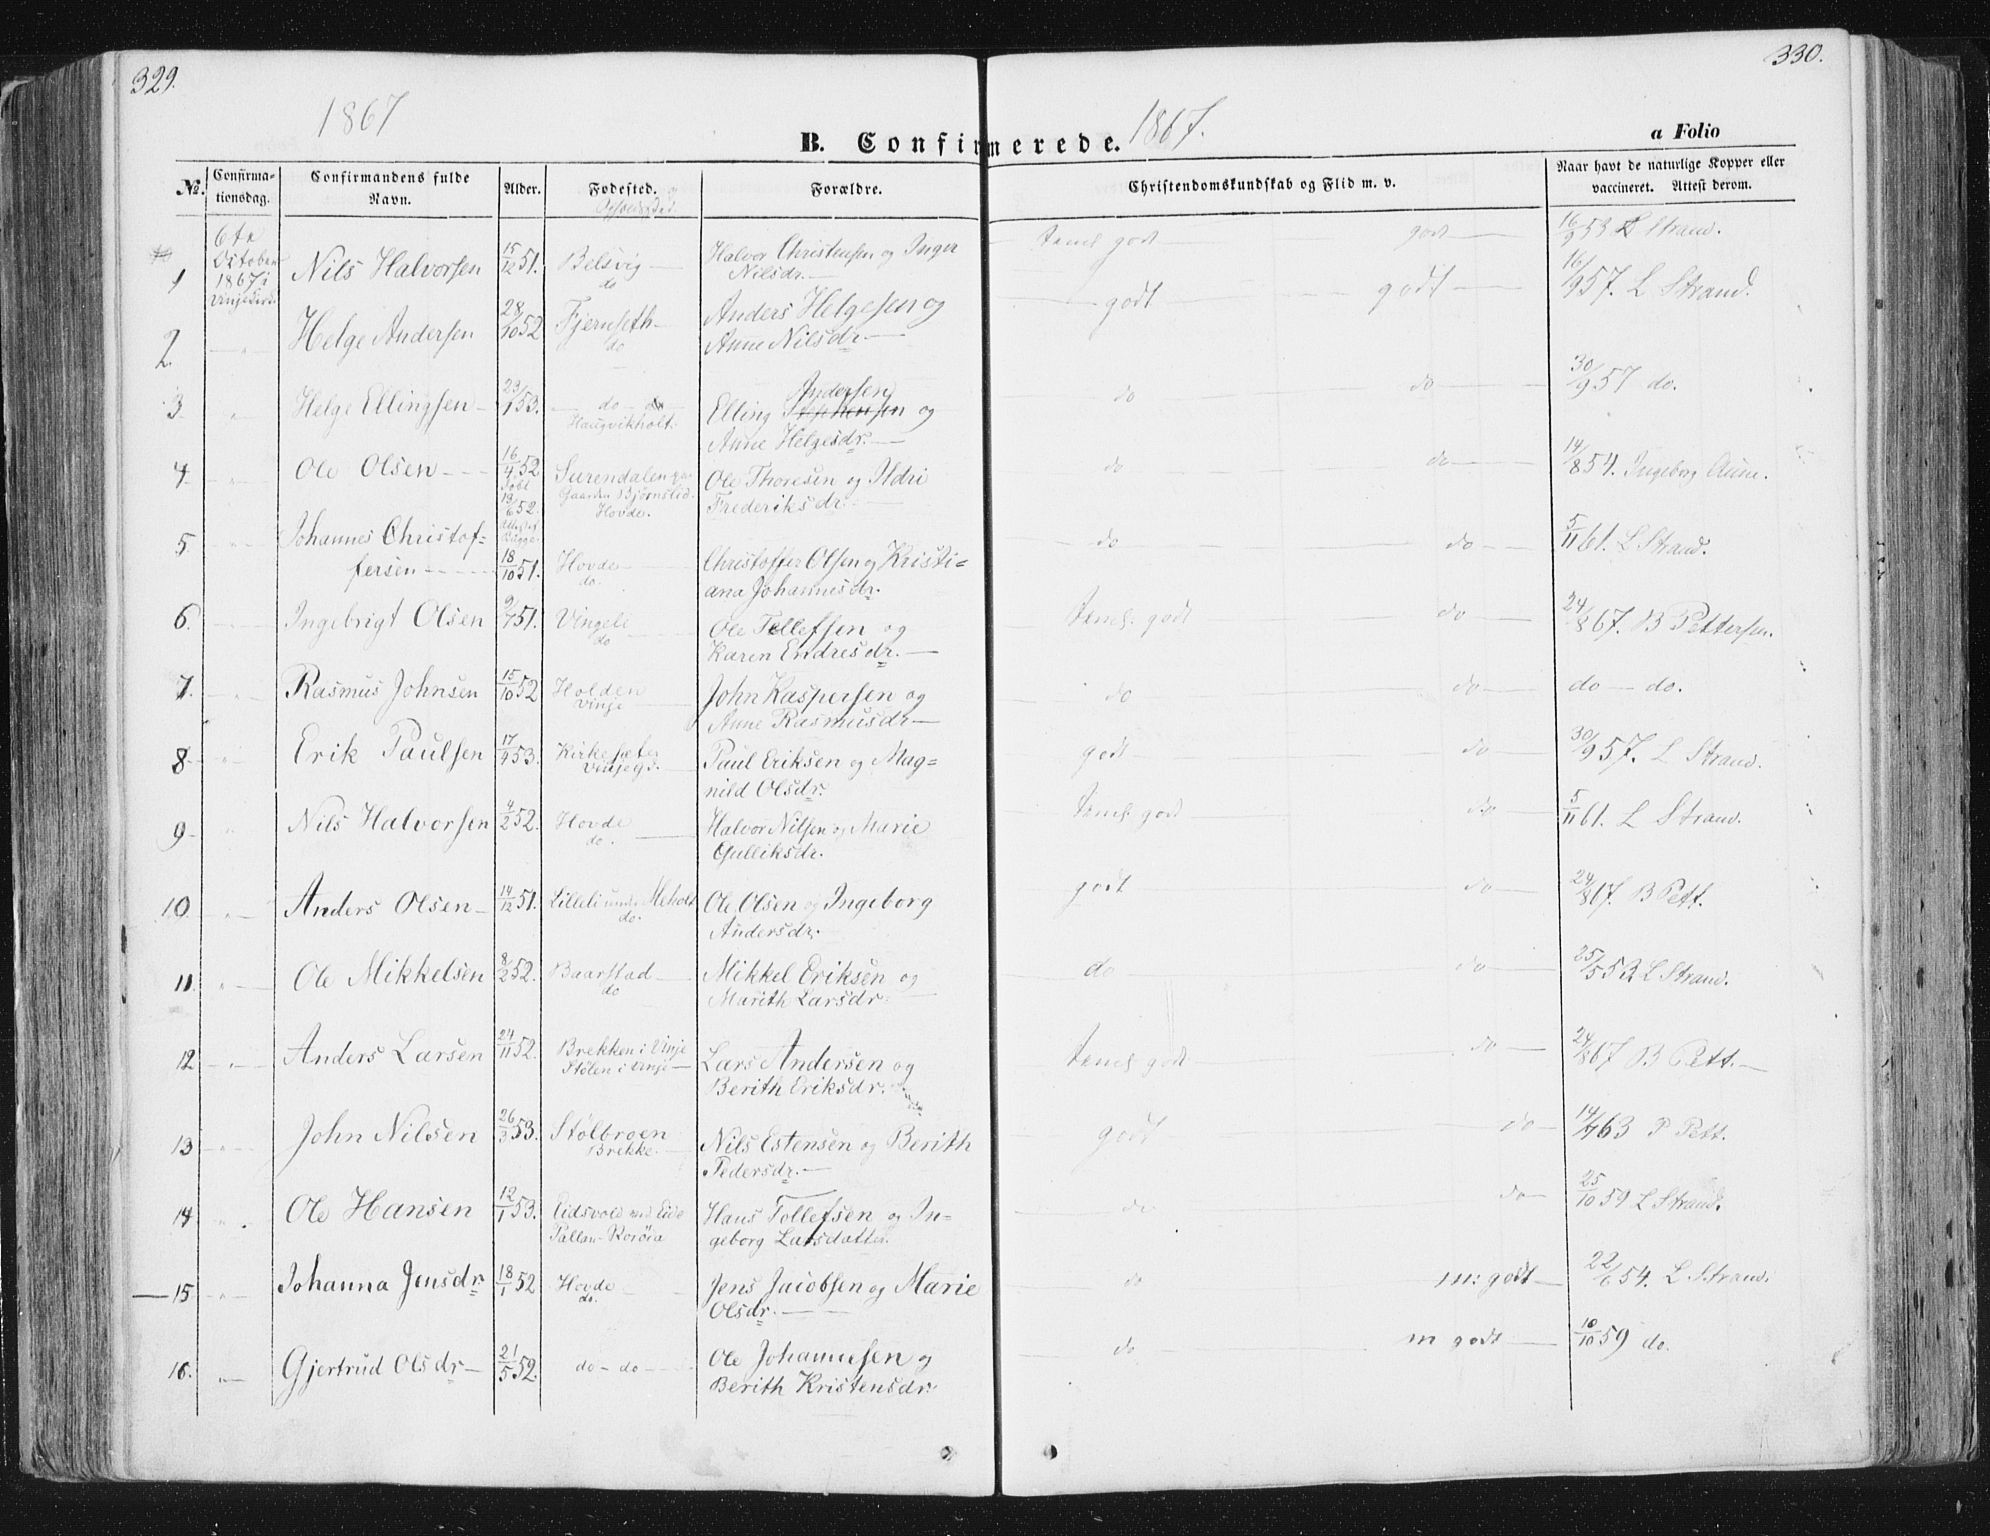 329.
330.
1867
1867.
B. Confirmerede.
a Folio
No. Confirma-tionsdag. Confirmandens fulde Navn. Alder. Fødested. og Opholdssted. Forældre. Christendomskundskab og Flid m. v. Naar havt de naturlige Kopper eller vaccineret. Attest derom.
6te October 1867 i
1 Nils Halvorsen 15/12 51. Belsvig do Halvor Christensen og Inger Nilsdr. temel. godt godt 16/9 53 L Strand.
2 " Helge Andersen 28/10 52 Fjernseth do Anders Helgesen og Anne Nilsdr. godt godt 16/9 57. L Strand.
3 " Helge Ellingsen 23/1 53. do do Haugvikholt. Elling Andersen og Anne Helgesdr. do do 30/9 57 do.
4 " Ole Olsen 16/4 52 Surendalen Gaarden Bjørnslid. Hovde. Ole Thoresen og Ildri Frederiksdr. do do 14/8 54. Ingeborg Aune.
5 " Johannes Christof-fersen 18/10 51. Hovde do. Christoffer Olsen og Kristi=ana Johannesdr. do do 5/11 61. L Strand.
6. " Ingebrigt Olsen 9/7 51. Vingeli do Ole Tellefsen og Karen Endresdr. temel: godt do 24/8 67. B Pettersen.
7. " Rasmus Johnsen 15/10 52 Holden Vinje John Kaspersen og Anne Rasmusdr do do do do.
8 " Erik Paulsen 17/9 53. Kirkesæter Vinjegd. Paul Eriksen og Mag=nild Olsdr. godt do 30/9 57. L Strand.
9 " Nils Halvorsen 4/2 52. Hovde do. Halvor Nilsen og Marie Gulliksdr. temel: godt do 5/11 61. L Strand.
10 " Anders Olsen 14/12 51. Lilleli under Meholt do. Ole Olsen og Ingeborg Andersdr. godt do 24/8 67. B Pett.
11. " Ole Mikkelsen 8/2 52. Baarstad do Mikkel Eriksen og Marith Larsdr. do do 25/5 53 L Strand.
12 " Anders Larsen 24/11 52. Brekken i Vinje Stølen i Vinje Lars Andersen og Berith Eriksdr. temel godt do 24/8 67 B Pett.
13 " John Nilsen 26/3 53. Stølbroen Brekke. Nils Estensen og Berith Pedersdr. godt do 14/7 63 P Pett.
14 " Ole Hansen 12/1 53. Eidsvold Hans Tollefsen og In=geborg Larsdatter do do 25/10 59 L Strand.
15 " Johanna Jensdr 18/1 52. Hovde do. Jens Jacobsen og Marie Olsdr. do m: godt 22/6 54. L Strand.
16. " Gjertrud Olsdr 21/5 52. do do Ole Johannesen og Berith Kristensdr. do m godt 10/10 59 do.